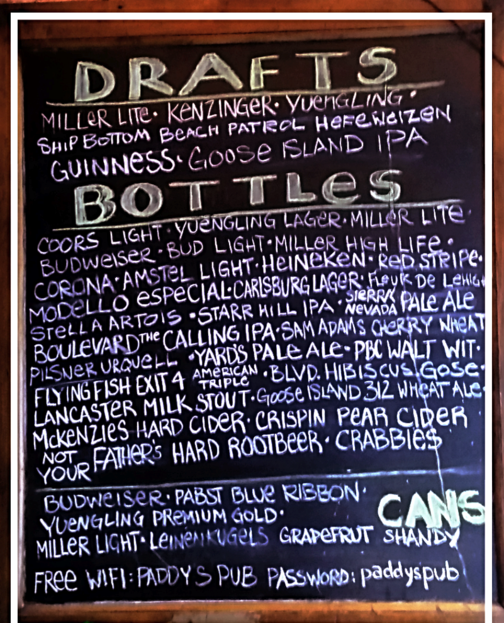 DRAFTS
MILLER LITE · KENZINGER · YUENGLING ·
SHIP BOTTOM BEACH PATROL HEFEWEIZEN
GUINNESS · GOOSE ISLAND IPA
BOTTLES
COORS LIGHT · YUENGLING LAGER · MILLER LITE
BUDWEISER · BUD LIGHT · MILLER HIGH LIFE ·
CORONA · AMSTEL LIGHT · HEINEKEN · RED STRIPE ·
MODELLO ESPECIAL · CARLSBURG LAGER · FLEUR DE LEHIGH
STELLA ARTOIS · STARR HILL IPA · SIERRA NEVADA PALE ALE
BOULEVARD THE CALLING IPA · SAM ADAMS CHERRY WHEAT
PILSNER URQUELL · YARDS PALE ALE · PBC WALT WIT ·
FLYING FISH EXIT 4 AMERICAN TRIPLE · BLVD. HIBISCUS GOSE ·
LANCASTER MILK STOUT · GOOSE ISLAND 312 WHEAT ALE ·
McKENZIES HARD CIDER · CRISPIN PEAR CIDER
NOT YOUR FATHER'S HARD ROOTBEER · CRABBIES
CANS
BUDWEISER · PABST BLUE RIBBON ·
YUENGLING PREMIUM GOLD ·
MILLER LIGHT · LEINENKUGELS GRAPEFRUIT SHANDY
FREE WIFI: PADDYS PUB PASSWORD: paddyspub